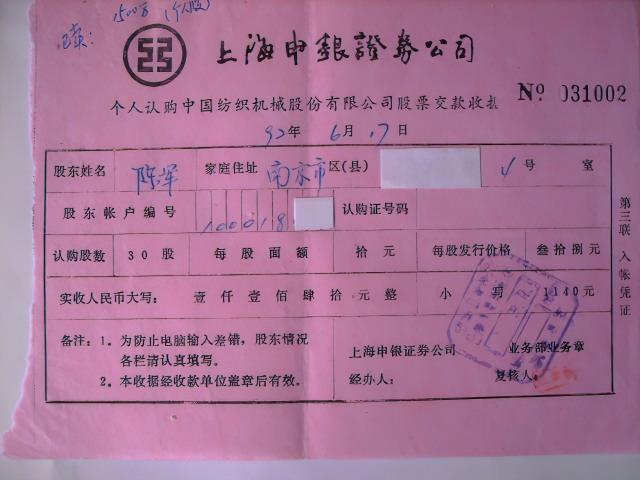 500万(个人股)
上海申銀證券公司
个人认购中国纺织机械股份有限公司股票交款收据
Nº 031002
92年6月17日
股东姓名 陈军 家庭住址 南京市区(县) 4号 室
股东帐户编号 100018 认购证号码
认购股数 30股 每股面额 拾元 每股发行价格 叁拾捌元
实收人民币大写: 壹仟壹佰肆拾元整 小写 1140元
备注: 1. 为防止电脑输入差错, 股东情况
各栏请认真填写。
2. 本收据经收款单位盖章后有效。
上海申银证券公司 业务部业务章
经办人: 复核人:
第三联 入帐凭证